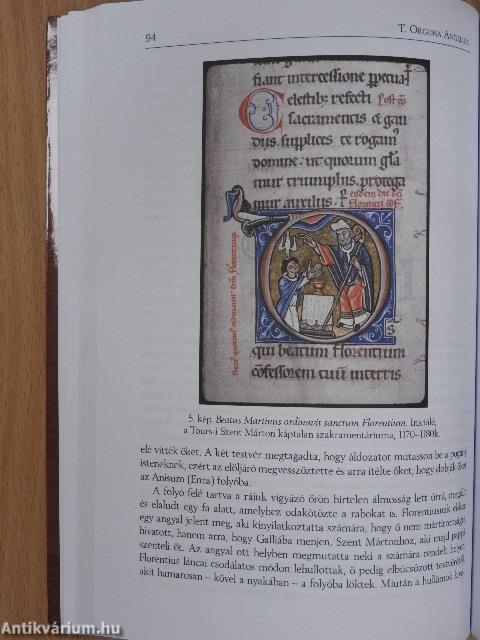 94
T. Orgona Angelika
fiant intercessione
Celestibꝫ refecti
sacramentis et gau
diis. supplices te rogamꝰ
domine. ut quorum gła
mur triumphis. protega
mur auxiliis.
Florentii
Beatꝰ Martinꝰ
qui beatum Florentium
confessorem tuū
5. kép. Beatus Martinus ordinavit sanctum Florentium. Iniciálé,
a Tours-i Szent Márton káptalan szakramentáriuma, 1170–1180k.
elé vitték őket. A két testvér megtagadta, hogy áldozatot mutasson be a pogány
isteneknek, ezért az elöljáró megvesszőztette és arra ítélte őket, hogy dobják őket
az Anisum (Enns) folyóba.
A folyó felé tartva a rájuk vigyázó őrön hirtelen álmosság lett úrrá, megállt
és elaludt egy fa alatt, amelyhez odakötözte a rabokat is. Florentiusnak ekkor
egy angyal jelent meg, aki kinyilatkoztatta számára, hogy ő nem mártíromságra
hivatott, hanem arra, hogy Galliába menjen, Szent Mártonhoz, aki majd pappá
szenteli őt. Az angyal ott helyben megmutatta neki a számára rendelt helyet.
Florentius láncai csodálatos módon lehullottak, ő pedig elbúcsúzott testvérétől,
akit hamarosan – kővel a nyakában – a folyóba löktek. Miután a hullámok
Antikvárium.hu